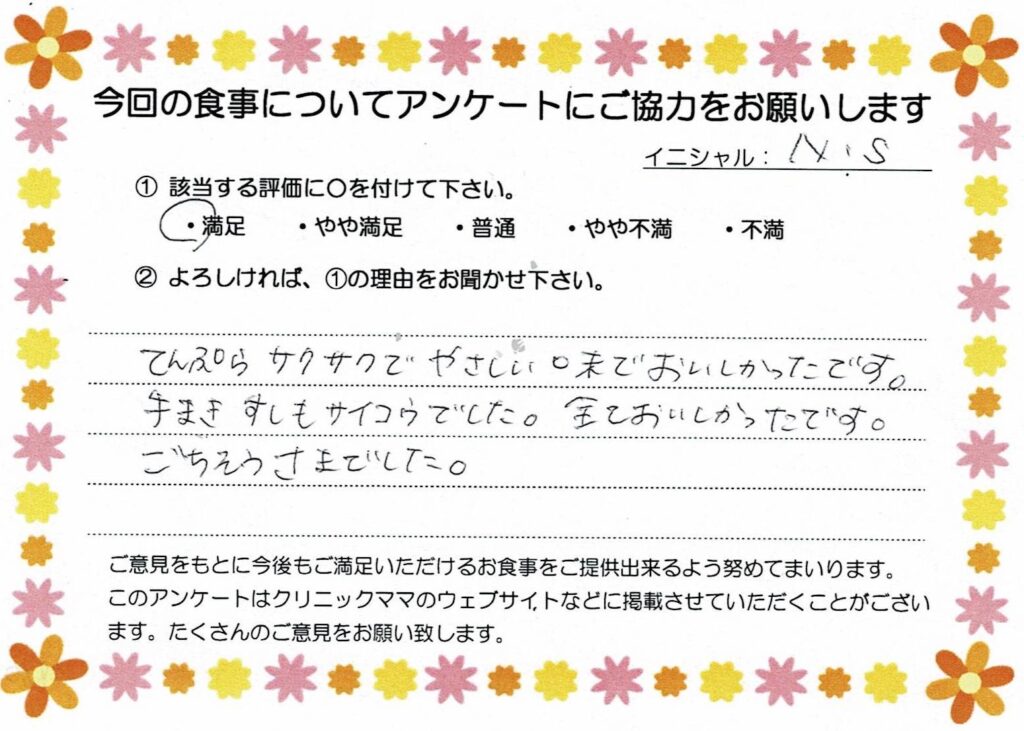 今回の食事についてアンケートにご協力をお願いします
イニシャル： N.S
① 該当する評価に〇を付けて下さい。
・満足 ・やや満足 ・普通 ・やや不満 ・不満
② よろしければ、①の理由をお聞かせ下さい。
てんぷら サクサクで やさしい味でおいしかったです。
手まき すしもサイコウでした。 全ておいしかったです。
ごちそうさまでした。
ご意見をもとに今後もご満足いただけるお食事をご提供出来るよう努めてまいります。
このアンケートはクリニックママのウェブサイトなどに掲載させていただくことがござい
ます。たくさんのご意見をお願い致します。